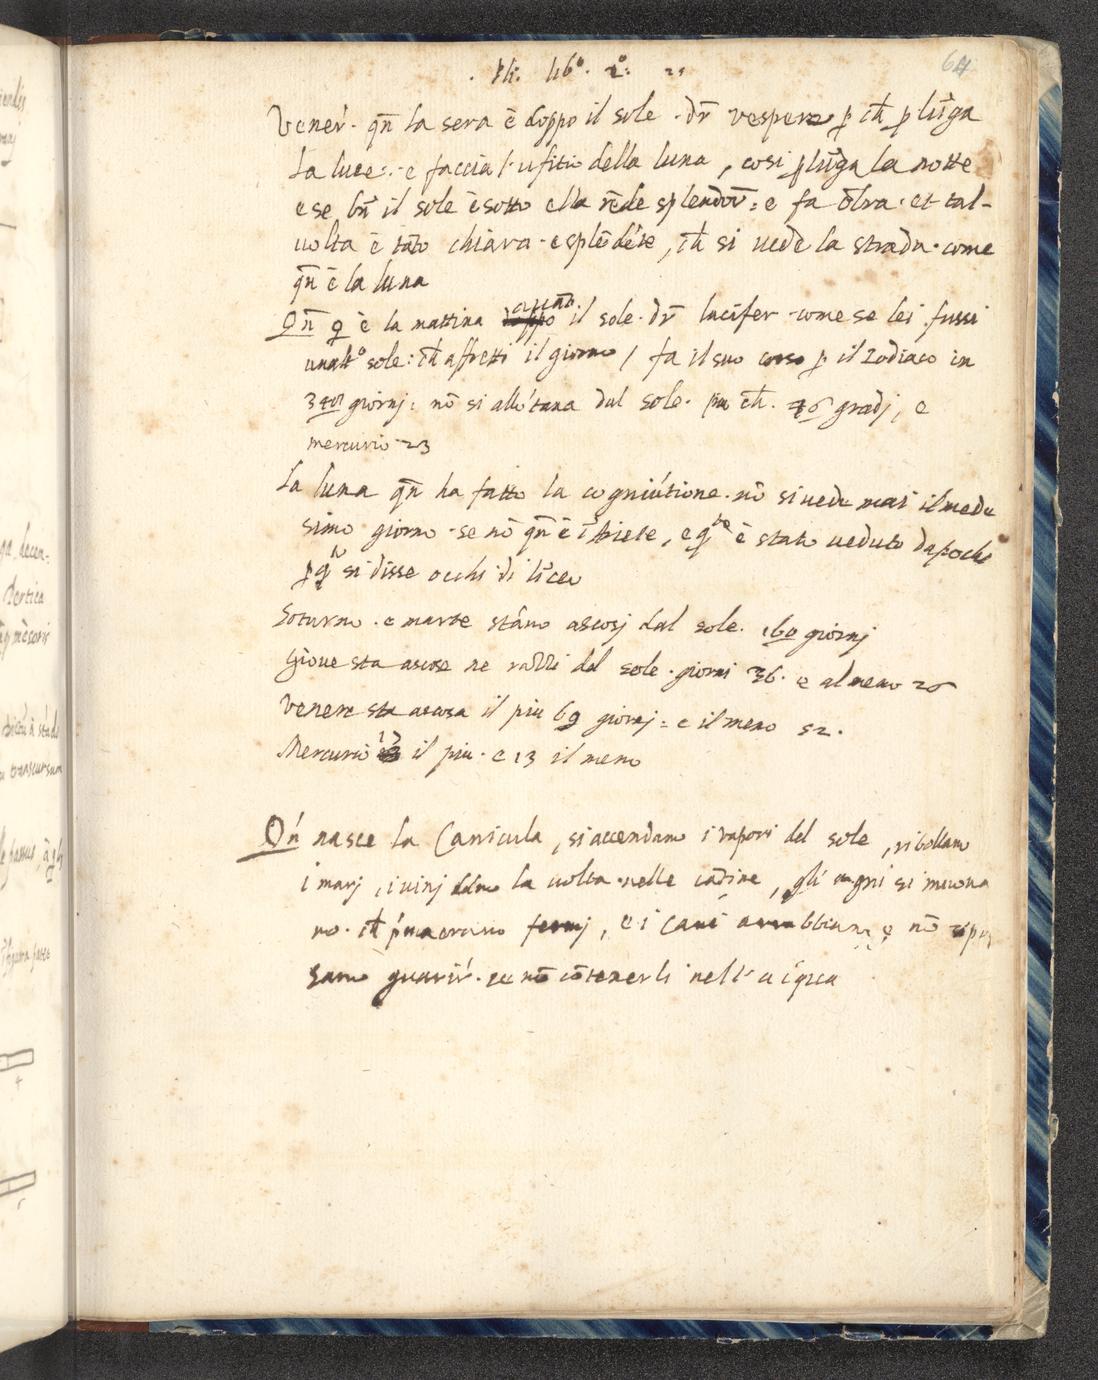 64
. Pli: lib°. 2°:
Vener'. qñ la sera è doppo il sole . dr̃ vespero p ch̃ p lūga
la luce: e faccia l'ufitio della luna, cosi plūga la notte
e se bñ il sole è sotto ella rēde splendor̃ = e fa ōbra . et tal-
uolta è tāto chiara . e splēdēte, ch̃ si uede la strada . come
qñ è la luna
Qñ q è la mattina doppo auāti il sole . dr̃ lucifer come se lei fussi
unalt° sole: ch̃ affretti il giorno / fa il suo corso p il Zodiaco in
giornj: nō si allōtana dal sole . piu ch̃ . 46 gradj, e
mercurio 23
La luna qñ ha fatto la cogniūtione . nō si uede mai il mede
simo giorno . se nō qñ è ī Ariete, e q^to è stato ueduto da pochi
p q^o si disse occhi di līceo
Soturno . e marte stāno ascosj dal sole . 160 giornj
Gioue sta ascose ne razzi del sole . giorni 36 . e al meno 26
Venere sta ascosa il piu 69 giornj = e il meno 52 .
Mercurio 17 il piu . e 13 il meno
Qñ nasce la Canicula, si accendano i vapori del sole, ribollano
i marj, i uinj dāno la uolta . nelle cātine, gli stagni si muoua
no . ch̃ p'ma erano fermj, e i cani arrabbiano, e nō si pos
sano guarir' . se nō cō tenerli nell' acqua